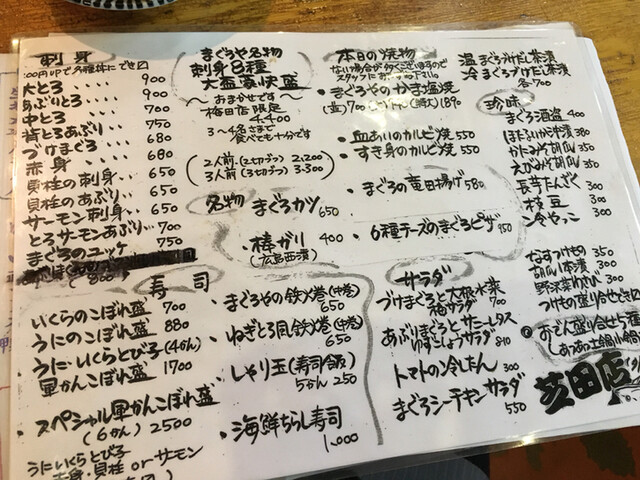 刺身
大とろ・・・・900
あぶりとろ・・・900
中とろ・・・・700
背とろあぶり・・750
づけまぐろ・・・680
赤身・・・・・680
貝柱の刺身・・・650
貝柱のあぶり・・650
サーモン刺身・・650
とろサーモンあぶり・・700
まぐろのユッケ 750
まぐろや名物
刺身8種
大盛豪快盛
〜おまかせです〜
梅田店限定
4,400
3〜4名さまで
食べても十分です
2人前(2切づつ)2,200
3人前(3切づつ)3,300
名物 まぐろカツ 650
・棒ガリ 400
(広島西漬)
本日の焼物
ない場合が多くございますので
・まぐろやのかま塩焼
(並)700
・血あいのカルビ焼 550
・すき身のカルビ焼 550
・まぐろの竜田揚げ 580
・6種チーズのまぐろピザ 950
温 まぐろづけだし茶漬
冷 まぐろづけだし茶漬
各700
珍味
まぐろ酒盗 400
ほたるいか沖漬 380
長芋たんざく 300
枝豆 300
冷やっこ 300
なすつけもの 350
野沢菜わさび 300
寿司
いくらのこぼれ盛 700
うにのこぼれ盛 880
うに・いくらとび子(4かん)
軍かんこぼれ盛 1700
・スペシャル軍かんこぼれ盛
(6かん)2500
うにいくらとび子
赤身・貝柱orサーモン
・まぐろやの鉄火巻(中巻)
650
・ねぎとろ風鉄火巻(中巻)
650
・しゃり玉(寿司飯)
5かん 250
・海鮮ちらし寿司
1,000
サラダ
づけまぐろと大根水菜
梅サラダ 700
あぶりまぐろとサニーレタス
ゆずこしょうサラダ 810
トマトの冷したん 300
まぐろシーチキンサラダ
550
芝田店